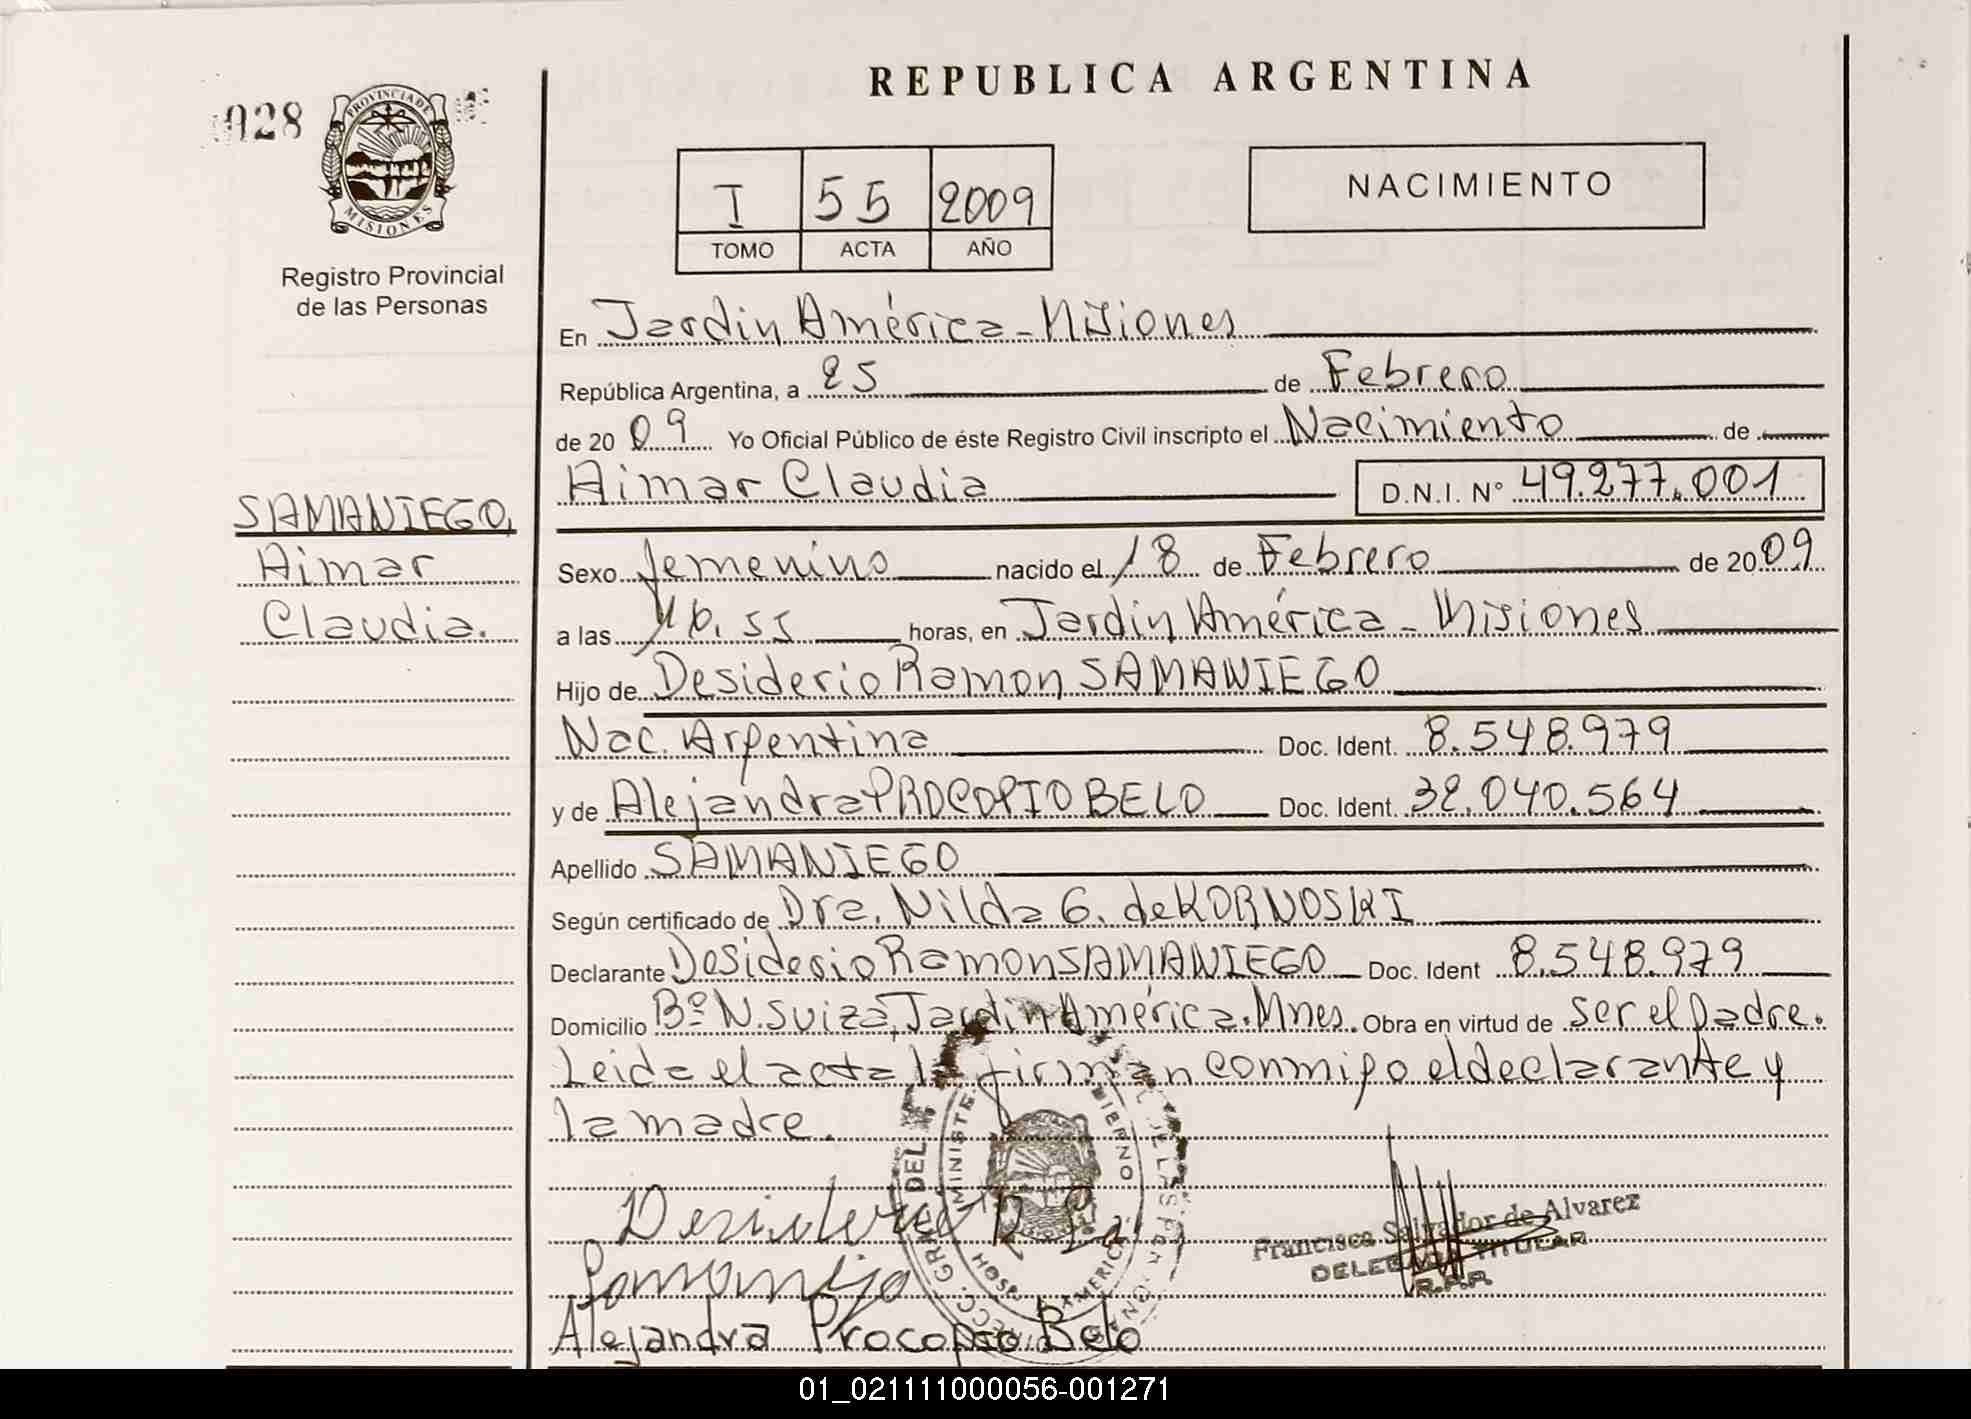 REPUBLICA ARGENTINA
028
PROVINCIA DE
MISIONES
Registro Provincial
de las Personas
I 55 2009
TOMO ACTA AÑO
NACIMIENTO
En Jardin América - Misiones
República Argentina, a 25 de Febrero
de 2009 Yo Oficial Público de éste Registro Civil inscripto el Nacimiento de
Aimar Claudia D.N.I. N° 49.277.001
SAMANIEGO,
Aimar
Claudia.
Sexo femenino nacido el 18 de Febrero de 2009
a las horas, en Jardin América - Misiones
Hijo de Desiderio Ramon SAMANIEGO
Nac. Argentina Doc. Ident. 8.548.979
y de Alejandra PROCOPIO BELO Doc. Ident. 32.040.564
Apellido SAMANIEGO
Según certificado de Dra. Nilda G. de KORNOSKI
Declarante Desiderio Ramon SAMANIEGO Doc. Ident 8.548.979
Domicilio B° N. Suiza, Jardin América. Mnes. Obra en virtud de ser el padre.
Leida el acta la firman conmigo el declarante y
la madre.
Desiderio R
Samaniego
Alejandra Procopio Belo
Francisca Salvador de Alvarez
DELEGADA TITULAR
R.P.P.
01_021111000056-001271